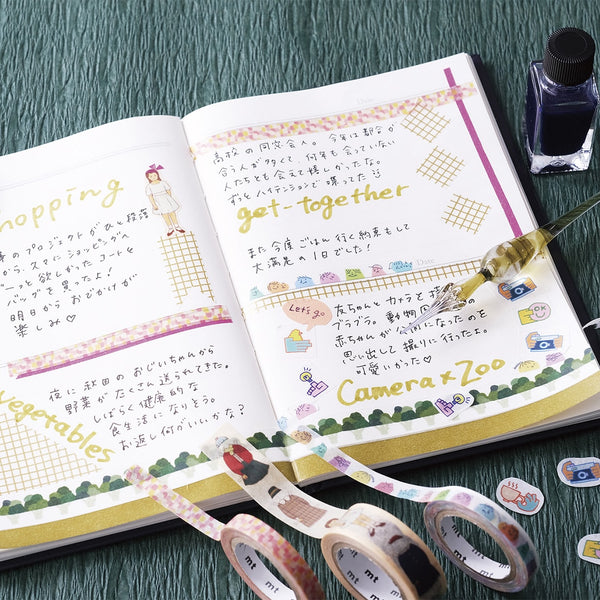 hopping
のプロジェクトがひと段落
から、スタバショッピングへ
ーっと欲しかったコートを
バッグを買ったよ!
明日から おでかけが
楽しみ♡
夜に秋田のおじいちゃんから
野菜がたくさん送られてきた。
しばらく健康的な
食生活になりそう。
お返し何がいいかな?
Vegetables
Date
高校の同窓会へ。今年は都合が
合う人が多くて、何年も会っていない
人たちとも会えて嬉しかったな。
ずっとハイテンションで喋ってた
get-together
また今度ごはん行く約束もして
大満足の1日でした!
Date
Let's go
友ちゃんとカメラと
ブラブラ。動物
赤ちゃんが になったのを
思い出して撮りに行ったよ。
可愛いかった♡
Camera×Zoo
mt
mt
mt